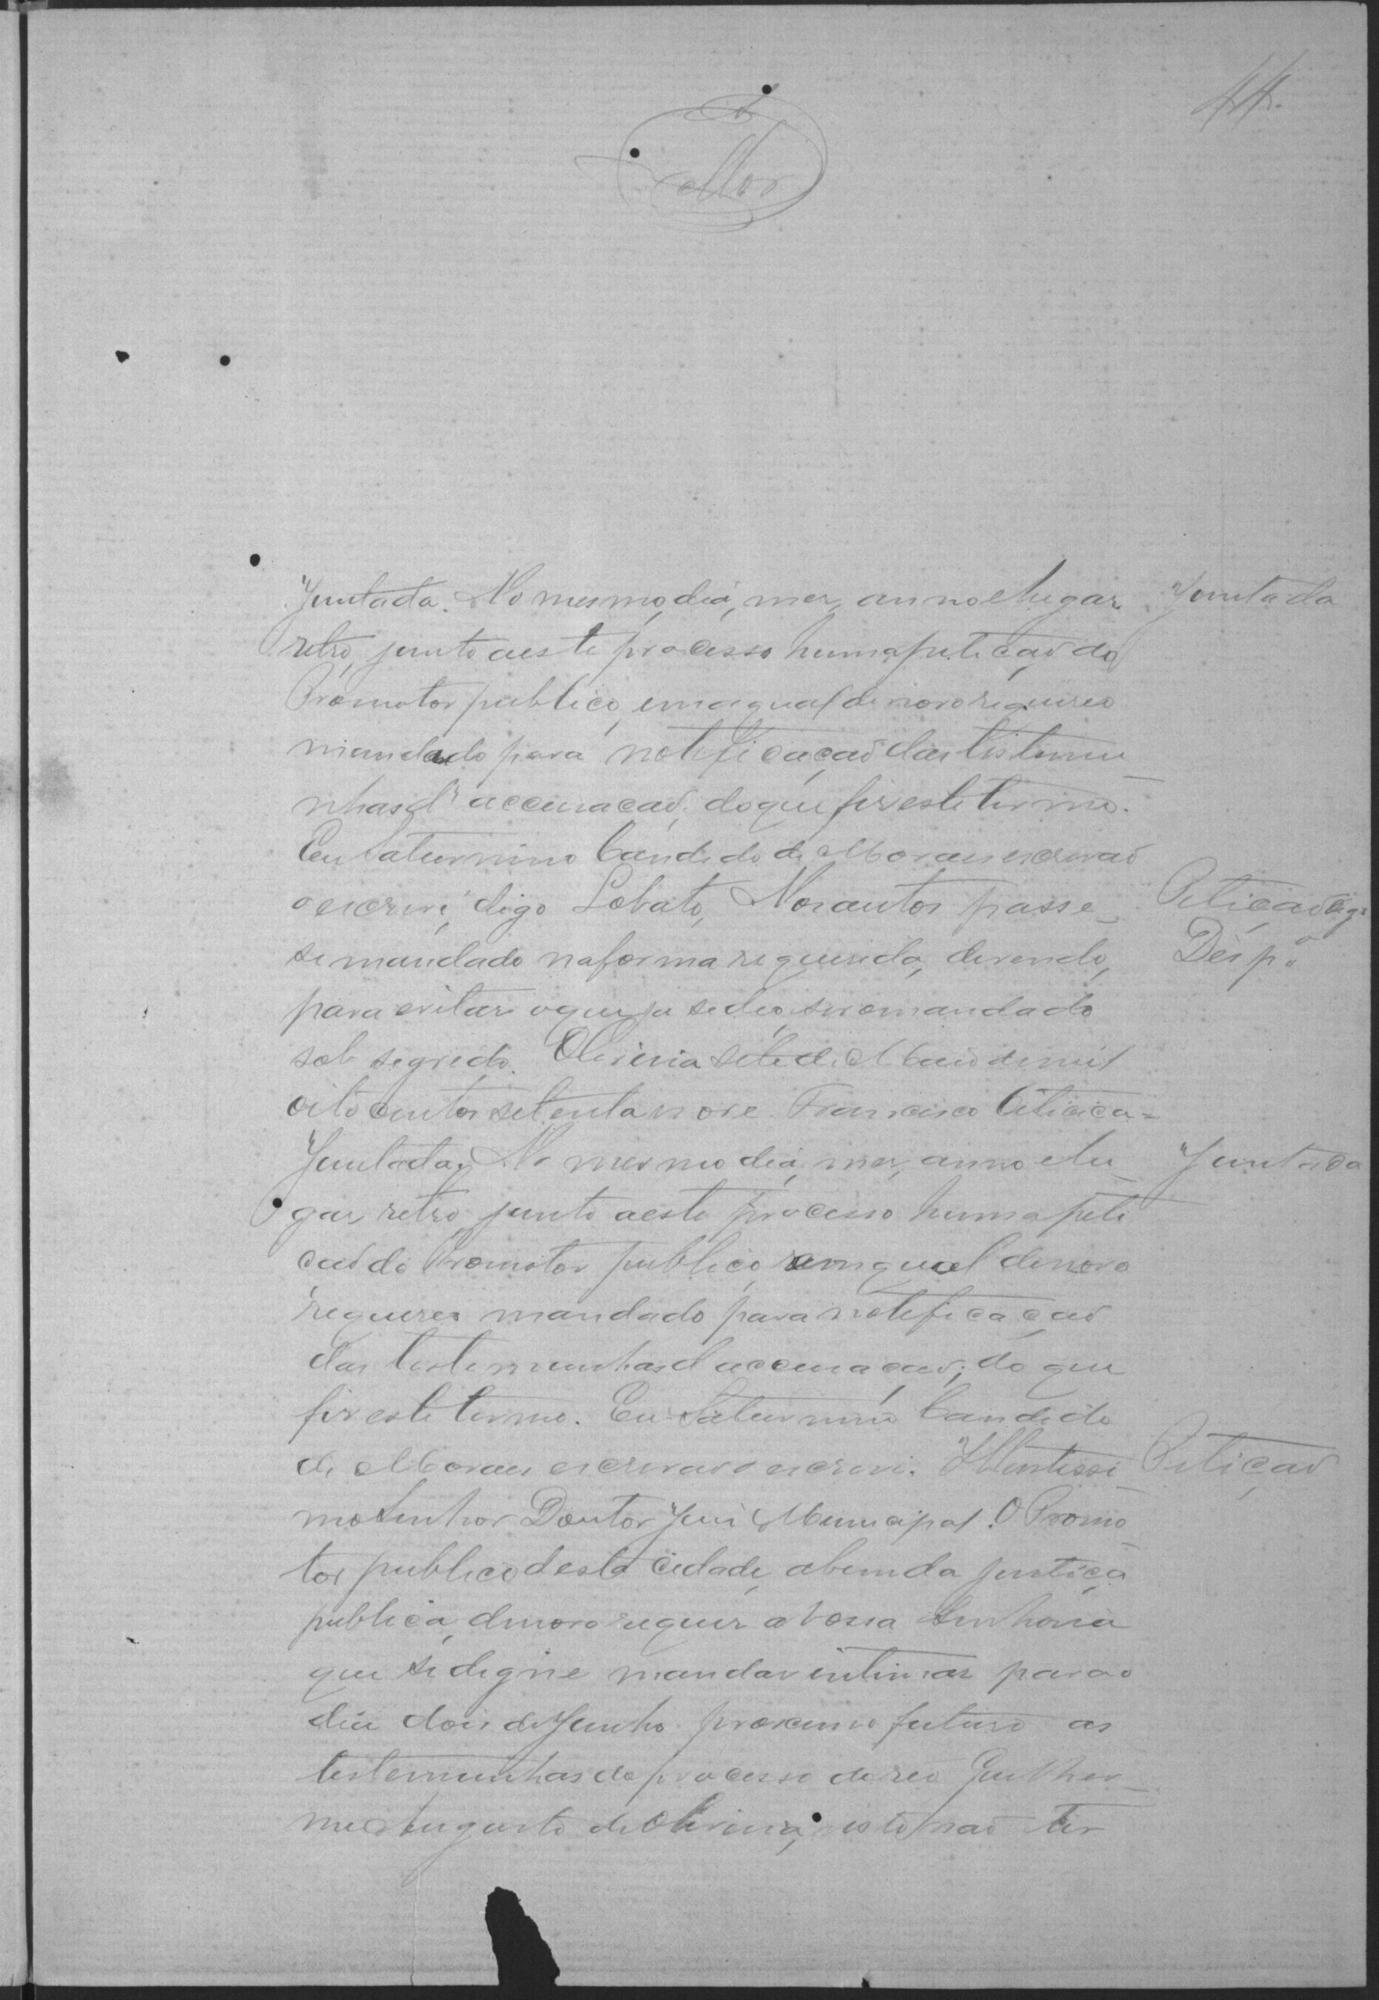 44.
Mor
Juntada. No mesmo dia, mez, anno e lugar Juntada
retro, junto a este processo huma petiçaõ do
Promotor publico, em a qual de novo requereo
mandado para notificaçaõ das testemu
nhas d' accusacaõ, do que fiz este termo.
Eu Saturnino Candido de Moraes escrivaõ
o escrivi, digo Lobato, Nos autos passe- Petiçaõ digo
se mandado na forma requerida, devendo, Desp.º
para evitar o que ja se deo, ser o mandado
sob segredo. Oliveira sete de Maio de mil
oito centos setenta nove. Francisco
Juntada, No mesmo dia, mez, anno e lu Juntada
gar retro, junto a este processo huma peti
caõ do Promotor publico, em qual de novo
requereo mandado para notificacaõ
das testemunhas d accusacaõ; do que
fiz este termo. Eu Saturnino Candido
de Moraes escrivaõ o escrivi. Illustissi Petiçaõ
mo Senhor Doutor Juis Municipal. O Promo
tor publico desta cidade, a bem da justiça
publica, de novo requer a Vossa Senhoria
que se digne mandar intimar para o
dia dois de Junho proximo futuro as
testemunhas do processo do reo Guilher-
me Augusto de Oliveira, isto naõ ter